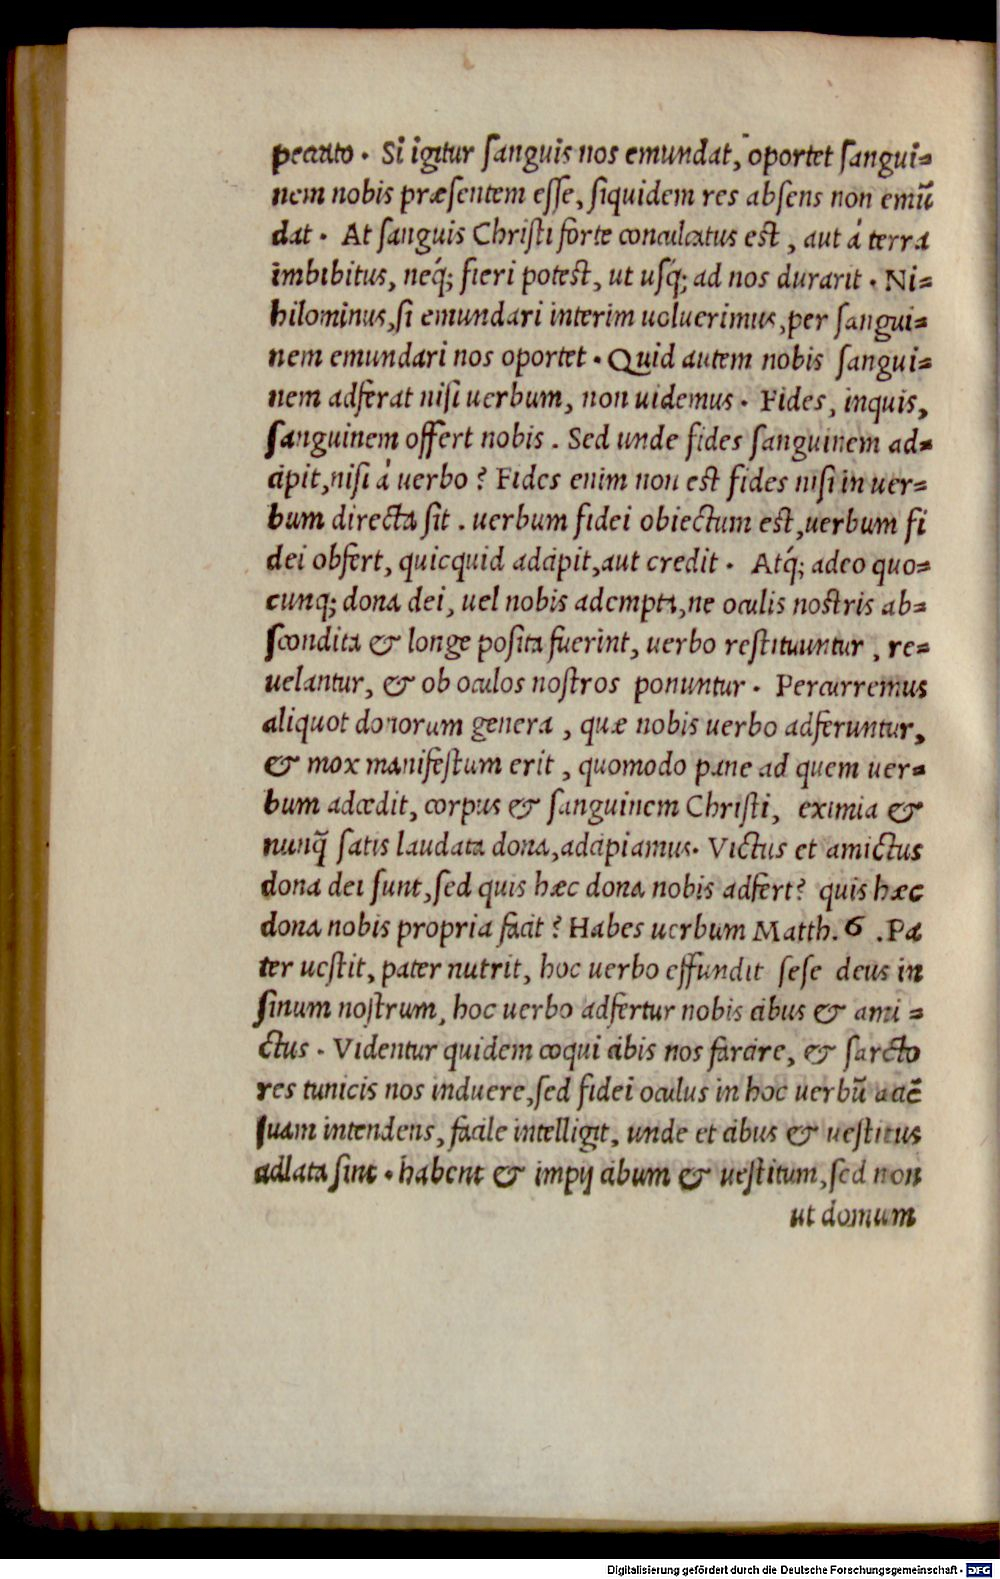 peccato. Si igitur ſanguis nos emundat, oportet ſangui=
nem nobis præſentem eſſe, ſiquidem res abſens non emũ
dat. At ſanguis Chriſti forte conculcatus eſt, aut á terra
imbibitus, neq́; fieri poteſt, ut uſq́; ad nos durarit. Ni=
hilominus, ſi emundari interim uoluerimus, per ſangui=
nem emundari nos oportet. Quid autem nobis ſangui=
nem adferat niſi uerbum, non uidemus. Fides, inquis,
ſanguinem offert nobis. Sed unde fides ſanguinem ad=
cipit, niſi á uerbo? Fides enim non eſt fides niſi in uer=
bum directa ſit. uerbum fidei obiectum eſt, uerbum fi
dei obfert, quicquid adcipit, aut credit. Atq́; adeo quo=
cunq; dona dei, uel nobis adempta, ne oculis noſtris ab=
ſcondita & longe poſita fuerint, uerbo reſtituuntur, re=
uelantur, & ob oculos noſtros ponuntur. Percurremus
aliquot donorum genera, quæ nobis uerbo adferuntur,
& mox manifeſtum erit, quomodo pane ad quem uer=
bum adcedit, corpus & ſanguinem Chriſti, eximia &
nunq̃ ſatis laudata dona, adcipiamus. Victus et amictus
dona dei ſunt, ſed quis hæc dona nobis adfert? quis hæc
dona nobis propria facit? Habes uerbum Matth. 6. Pa
ter ueſtit, pater nutrit, hoc uerbo effundit ſeſe deus in
ſinum noſtrum, hoc uerbo adfertur nobis cibus & ami=
ctus. Videntur quidem coqui cibis nos farcire, & ſarcto
res tunicis nos induere, ſed fidei oculus in hoc uerbũ aciẽ
ſuam intendens, facile intelligit, unde et cibus & ueſtitus
adlata ſint. habent & impij cibum & ueſtitum, ſed non
ut domum
Digitalisierung gefördert durch die Deutsche Forschungsgemeinschaft - DFG